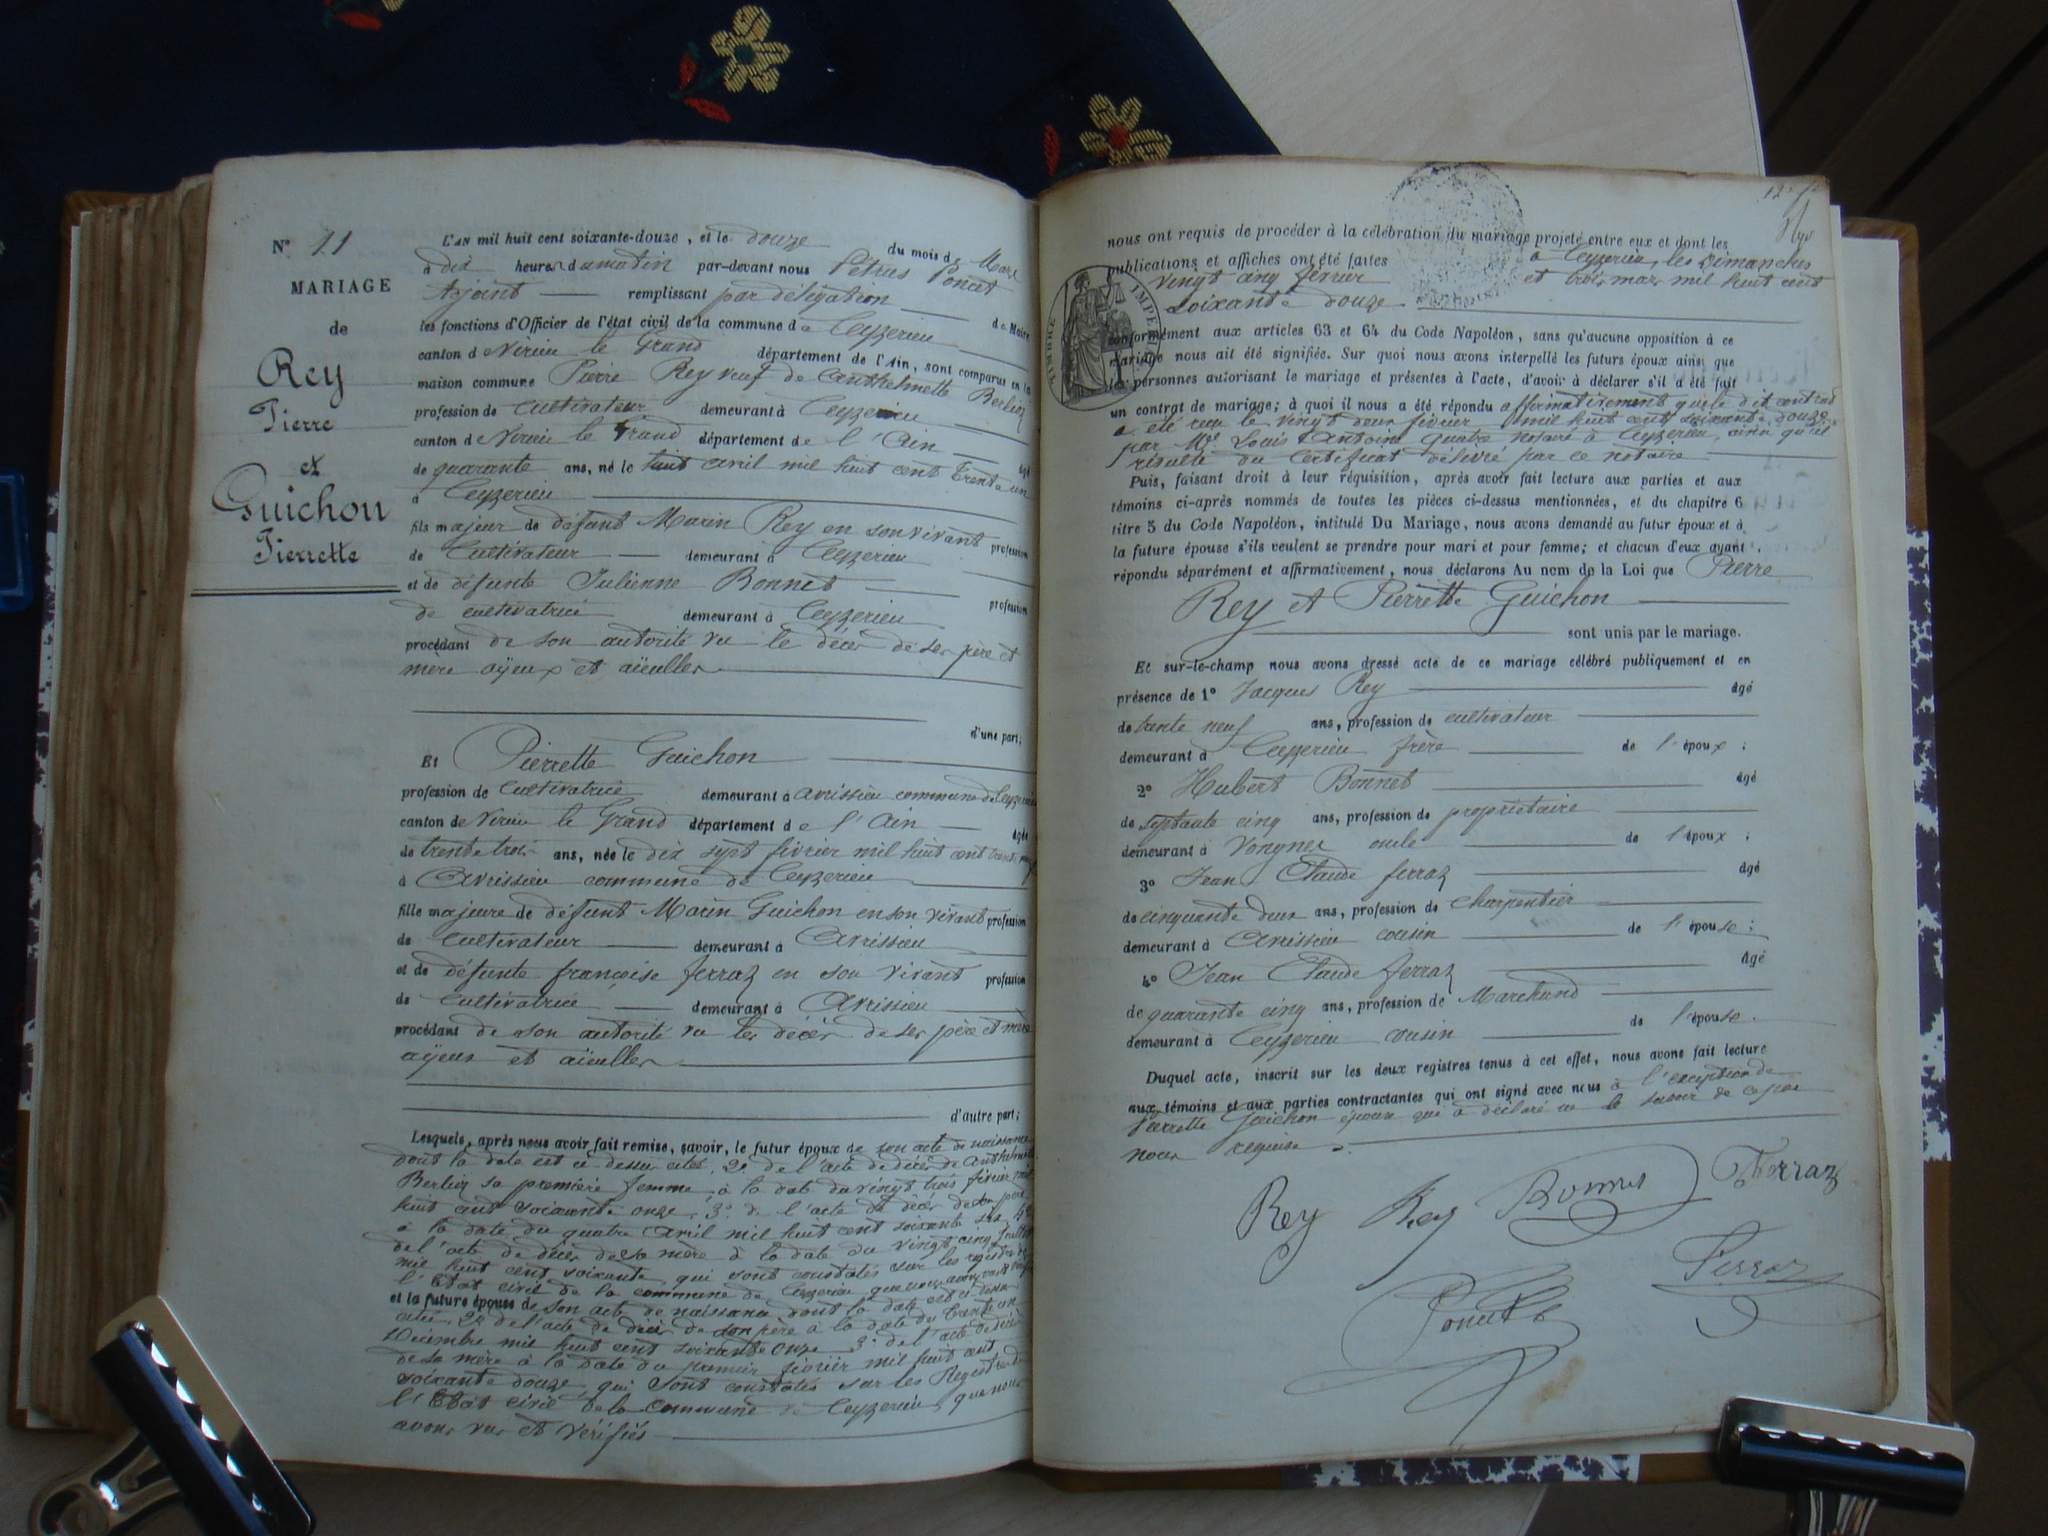 N° 11
MARIAGE
de
Rey
Pierre
et
Guichon
Pierrette
L'AN mil huit cent soixante-douze, et le douze du mois de Mars
à dix heures du matin par-devant nous Pétrus Poncet
Adjoint remplissant par délégation
les fonctions d'Officier de l'état civil de la commune de Ceyzerieu de Maire
canton de Virieu le Grand département de l'Ain, sont comparus en la
maison commune Pierre Rey veuf de Anthelmette Berlioz
profession de Cultivateur demeurant à Ceyzerieu
canton de Virieu le Grand département de l'Ain âgé
de quarante ans, né le huit avril mil huit cent trente un
à Ceyzerieu
fils majeur de défunt Marin Rey en son vivant profession
de Cultivateur demeurant à Ceyzerieu
et de défunte Julienne Bonnet profession
de cultivatrice demeurant à Ceyzerieu
procédant de son autorité vu le décès de ses père et
mère ayeux et aïeulles
d'une part;
Et Pierrette Guichon
profession de Cultivatrice demeurant à avrissieu commune de Ceyzerieu
canton de Virieu le Grand département de l'Ain âgée
de trente trois ans, née le dix sept février mil huit cent trente
à Avrissieu commune de Ceyzerieu
fille majeure de défunt Marin Guichon en son vivant profession
de Cultivateur demeurant à Avrissieu
et de défunte françoise ferraz en son vivant profession
de Cultivatrice demeurant à Avrissieu
procédant de son autorité vu les décès de ses père et mère
ayeux et aïeulles
d'autre part;
Lesquels, après nous avoir fait remise, savoir, le futur époux de son acte de naissance
dont la date est ci dessus citée, 2° de l'acte de décès de Anthelmette
Berlioz sa première femme à la date du vingt trois février mil
huit cent soixante onze, 3° de l'acte de décès de son père
à la date du quatre avril mil huit cent soixante six, 4°
de l'acte de décès de sa mère à la date du vingt cinq juillet
mil huit cent soixante qui sont constatés sur les registres de
l'Etat civil de la commune de Ceyzerieu que nous avons vus et vérifiés
et la future épouse de son acte de naissance dont la date est ci dessus
citée, 2° de l'acte de décès de son père à la date du trente un
Décembre mil huit cent soixante onze 3° de l'acte de décès
de sa mère à la date du premier février mil huit cent
soixante douze qui sont constatés sur les Registres de
l'Etat civil de la Commune de Ceyzerieu, que nous
avons vus et vérifiés
nous ont requis de procéder à la célébration du mariage projeté entre eux et dont les
publications et affiches ont été faites à Ceyzerieu, les Dimanches
vingt cinq février et trois mars mil huit cent
soixante douze
TIMBRE IMPÉRIAL
conformément aux articles 63 et 64 du Code Napoléon, sans qu'aucune opposition à ce
mariage nous ait été signifiée. Sur quoi nous avons interpellé les futurs époux ainsi que
les personnes autorisant le mariage et présentes à l'acte, d'avoir à déclarer s'il a été fait
un contrat de mariage; à quoi il nous a été répondu affirmativement que le dit contrat
a été reçu le vingt deux février mil huit cent soixante douze
par Me Louis Antoine notaire à Ceyzerieu, ainsi qu'il
résulte du Certificat délivré par ce notaire
Puis, faisant droit à leur réquisition, après avoir fait lecture aux parties et aux
témoins ci-après nommés de toutes les pièces ci-dessus mentionnées, et du chapitre 6
titre 5 du Code Napoléon, intitulé Du Mariage, nous avons demandé au futur époux et à
la future épouse s'ils veulent se prendre pour mari et pour femme; et chacun d'eux ayant
répondu séparément et affirmativement, nous déclarons Au nom de la Loi que Pierre
Rey et Pierrette Guichon
sont unis par le mariage.
Et sur-le-champ nous avons dressé acte de ce mariage célébré publiquement et en
présence de 1° Jacques Rey âgé
de trente neuf ans, profession de cultivateur
demeurant à Ceyzerieu frère de l'époux;
2° Hubert Bonnet âgé
de septante cinq ans, profession de propriétaire
demeurant à Vongnes oncle de l'époux;
3° Jean Claude ferraz âgé
de cinquante deux ans, profession de Charpentier
demeurant à Avrissieu cousin de l'épouse;
4° Jean Claude ferraz âgé
de quarante cinq ans, profession de Marchand
demeurant à Ceyzerieu cousin de l'épouse.
Duquel acte, inscrit sur les deux registres tenus à cet effet, nous avons fait lecture
aux témoins et aux parties contractantes qui ont signé avec nous à l'exception de
Pierrette Guichon épouse que a déclaré ne le savoir de ce par
nous requise
Rey Rey Bonnet Ferraz
Ferraz
Poncet